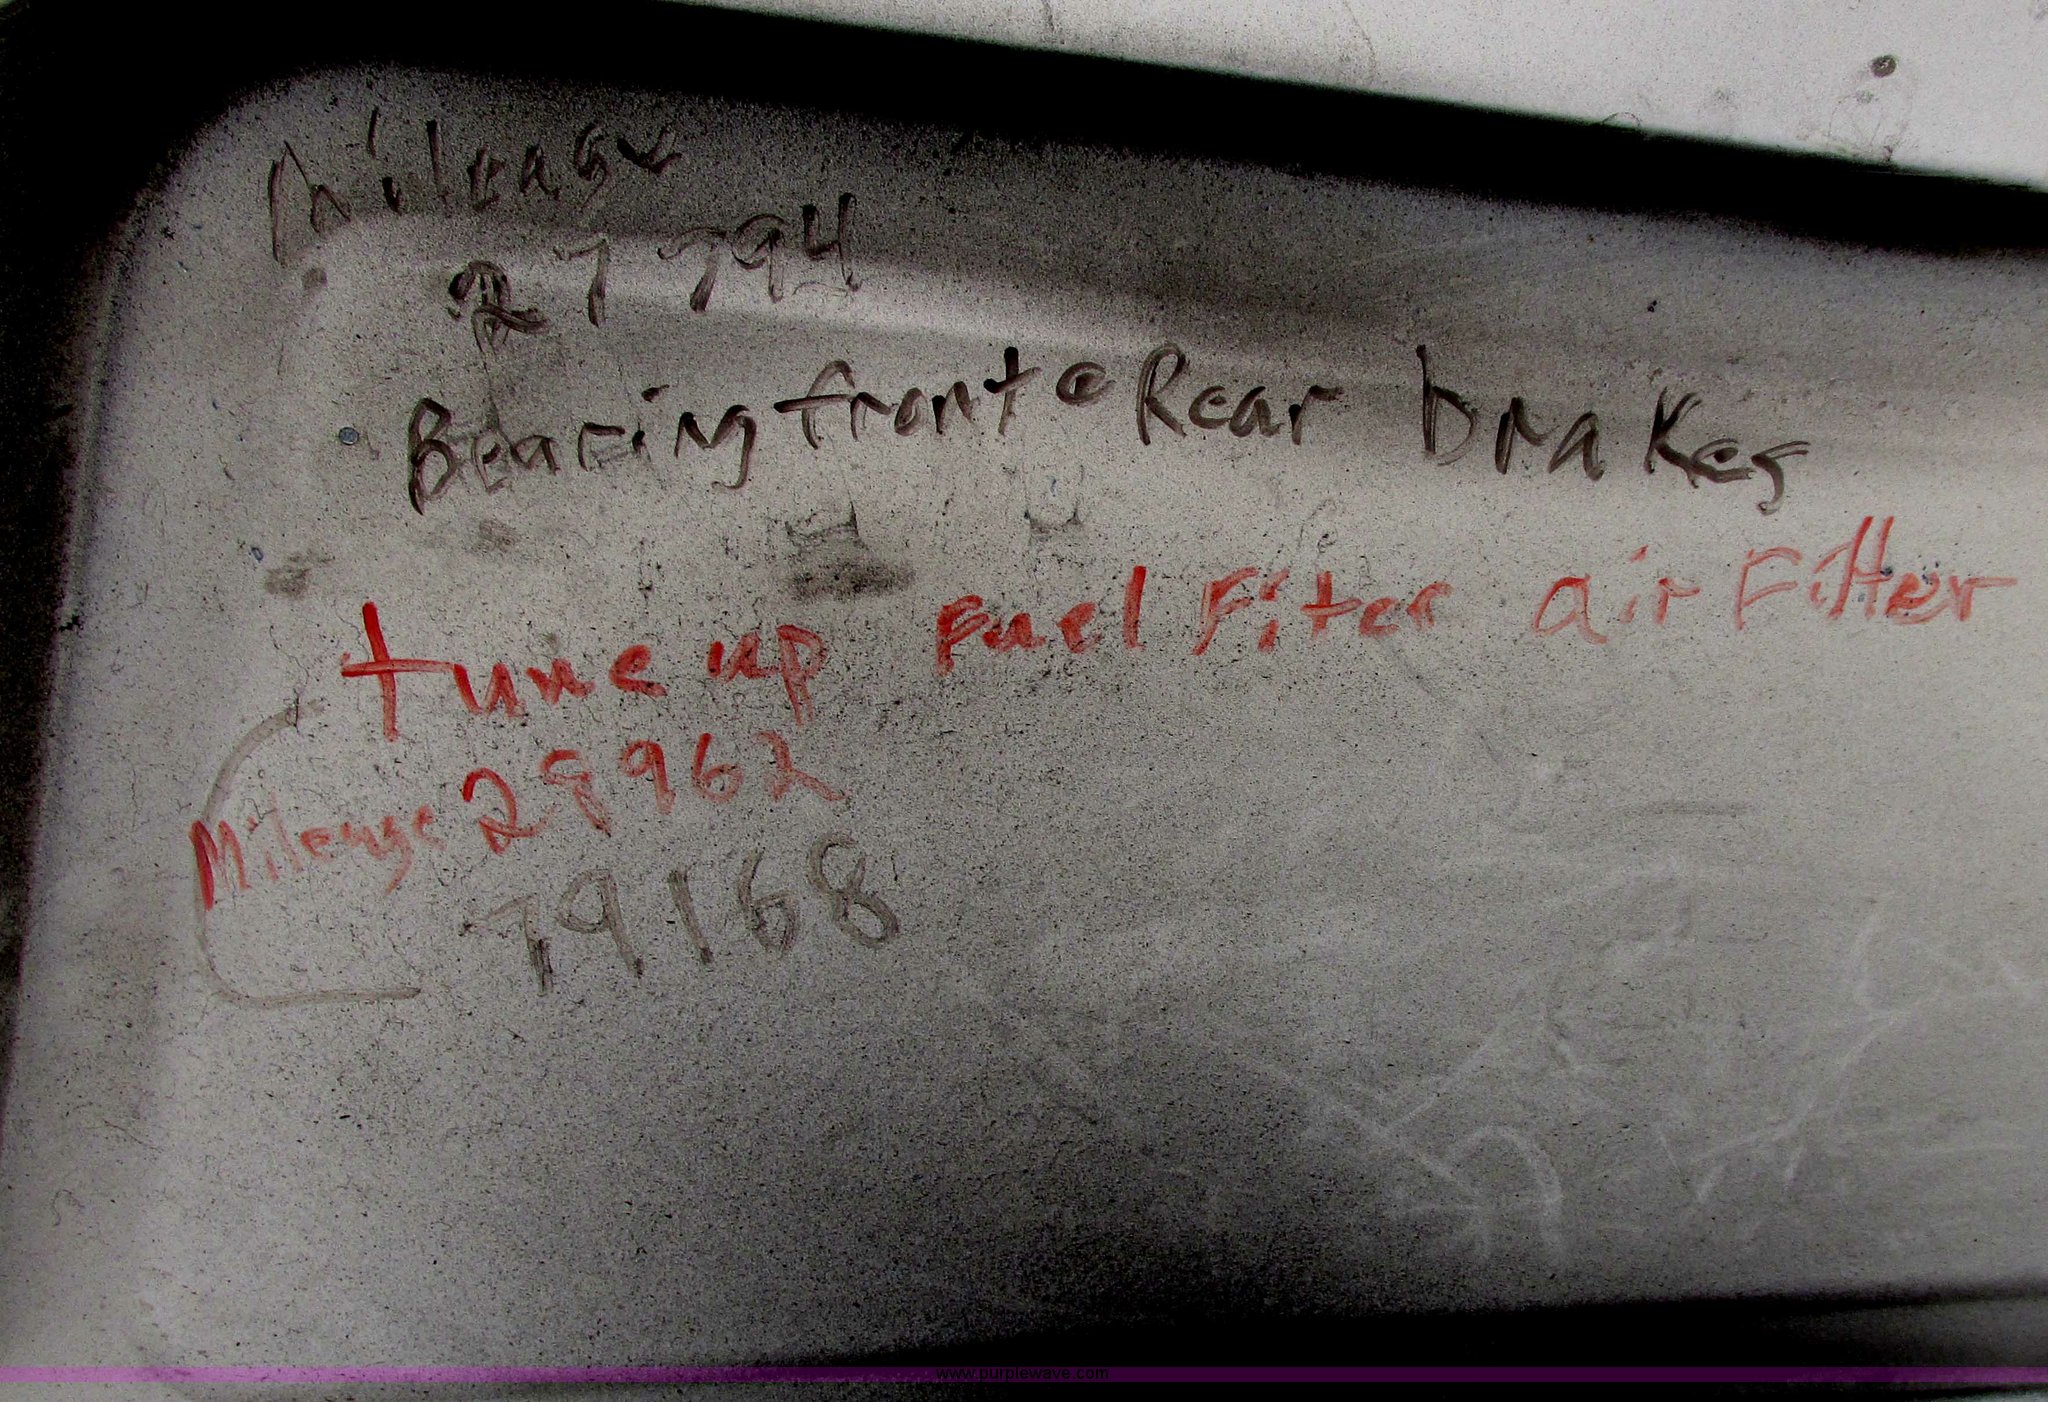 Mileage
27794
Bearing front @ Rear brakes
tune up Fuel Filter air Filter
Mileage 28962
79168
www.purplewave.com